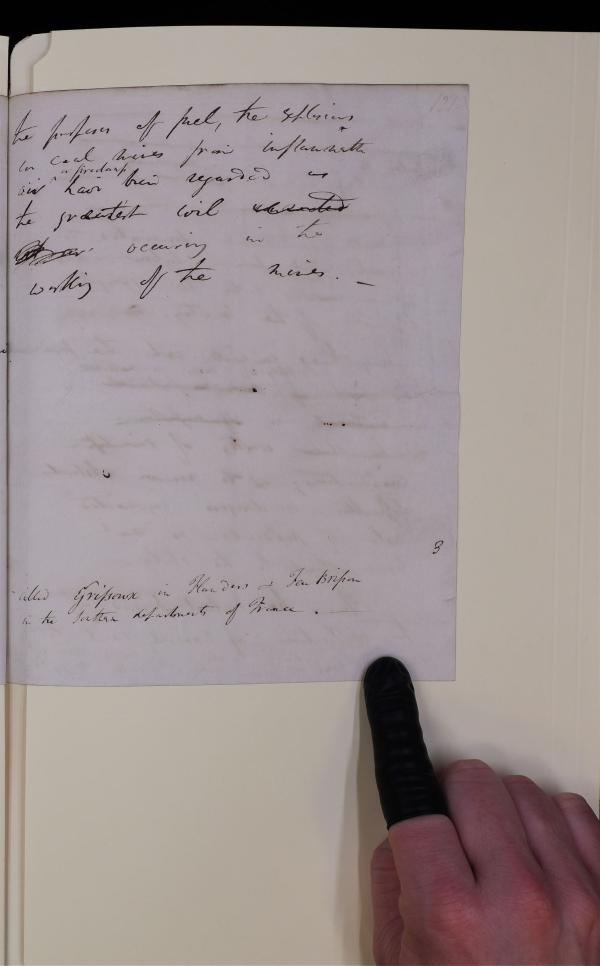 121
the purposes of fuel, the explosions
in coal mines from inflammable
air or firedamp have been regarded as
the greatest evil
occuring in the
working of the mines. —
3
called Grisoux in Flanders & Feu Brisou
in the southern departments of France. —